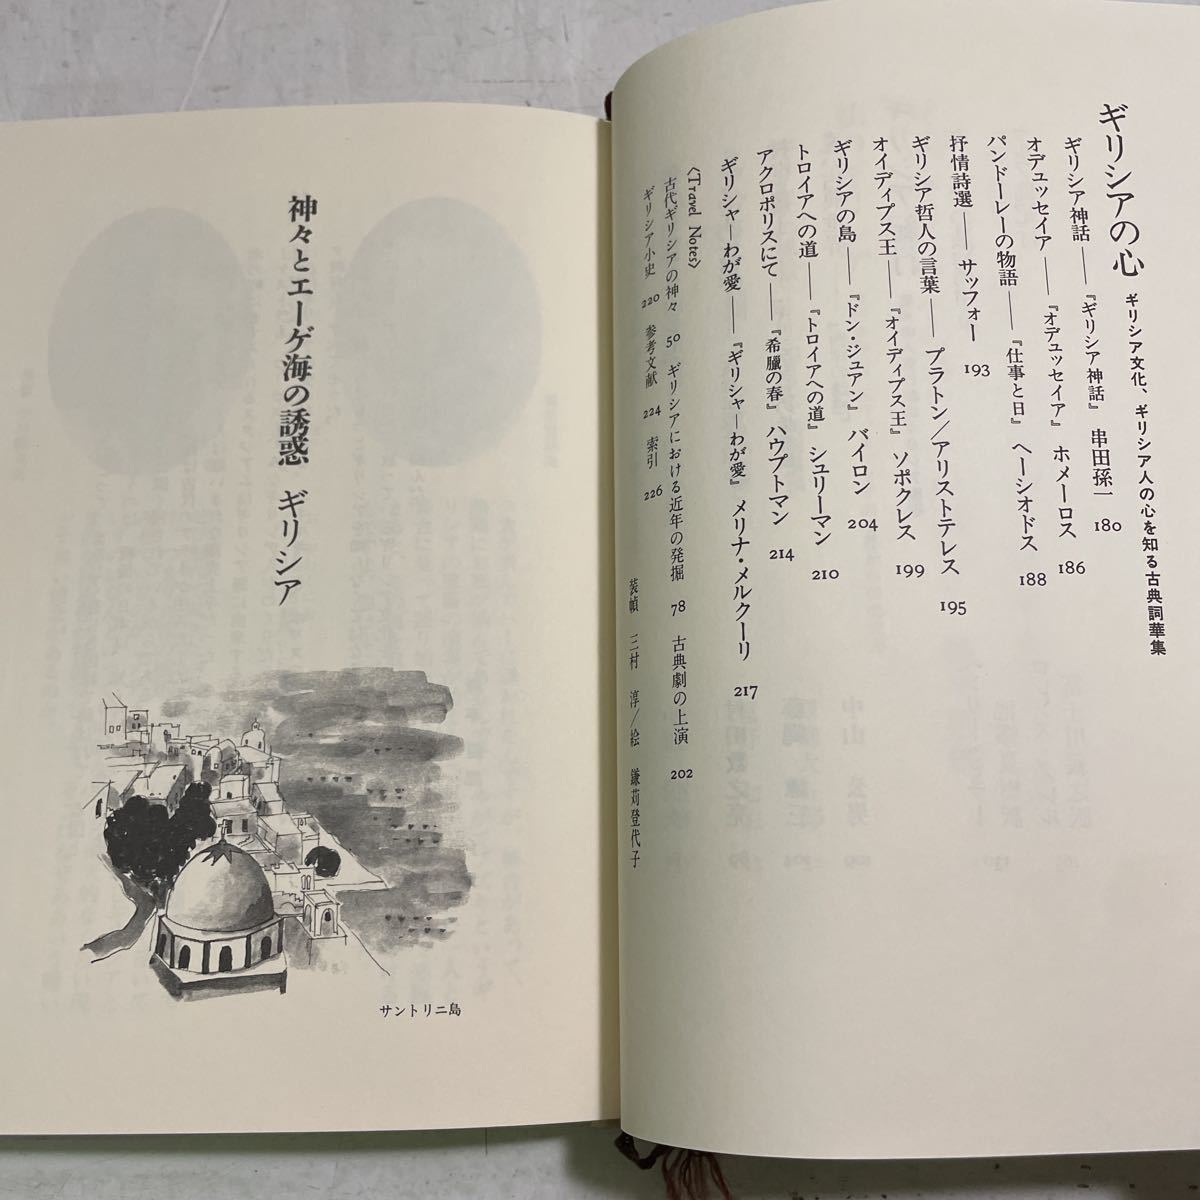 ギリシアの心 ギリシア文化、ギリシア人の心を知る古典詞華集
ギリシア神話——『ギリシア神話』 串田孫一 180
オデュッセイア——『オデュッセイア』 ホメーロス 186
パンドーレーの物語——『仕事と日』 ヘーシオドス 188
抒情詩選——サッフォー 193
ギリシア哲人の言葉——プラトン/アリストテレス 195
オイディプス王——『オイディプス王』 ソポクレス 199
ギリシアの島——『ドン・ジュアン』 バイロン 204
トロイアへの道——『トロイアへの道』 シュリーマン 210
アクロポリスにて——『希臘の春』 ハウプトマン 214
ギリシャーわが愛——『ギリシャーわが愛』 メリナ・メルクーリ 217
〈Travel Notes〉
古代ギリシアの神々 50 ギリシアにおける近年の発掘 78 古典劇の上演 202
ギリシア小史 220 参考文献 224 索引 226
装幀 三村 淳/絵 鎌苅登代子
神々とエーゲ海の誘惑 ギリシア
サントリニ島